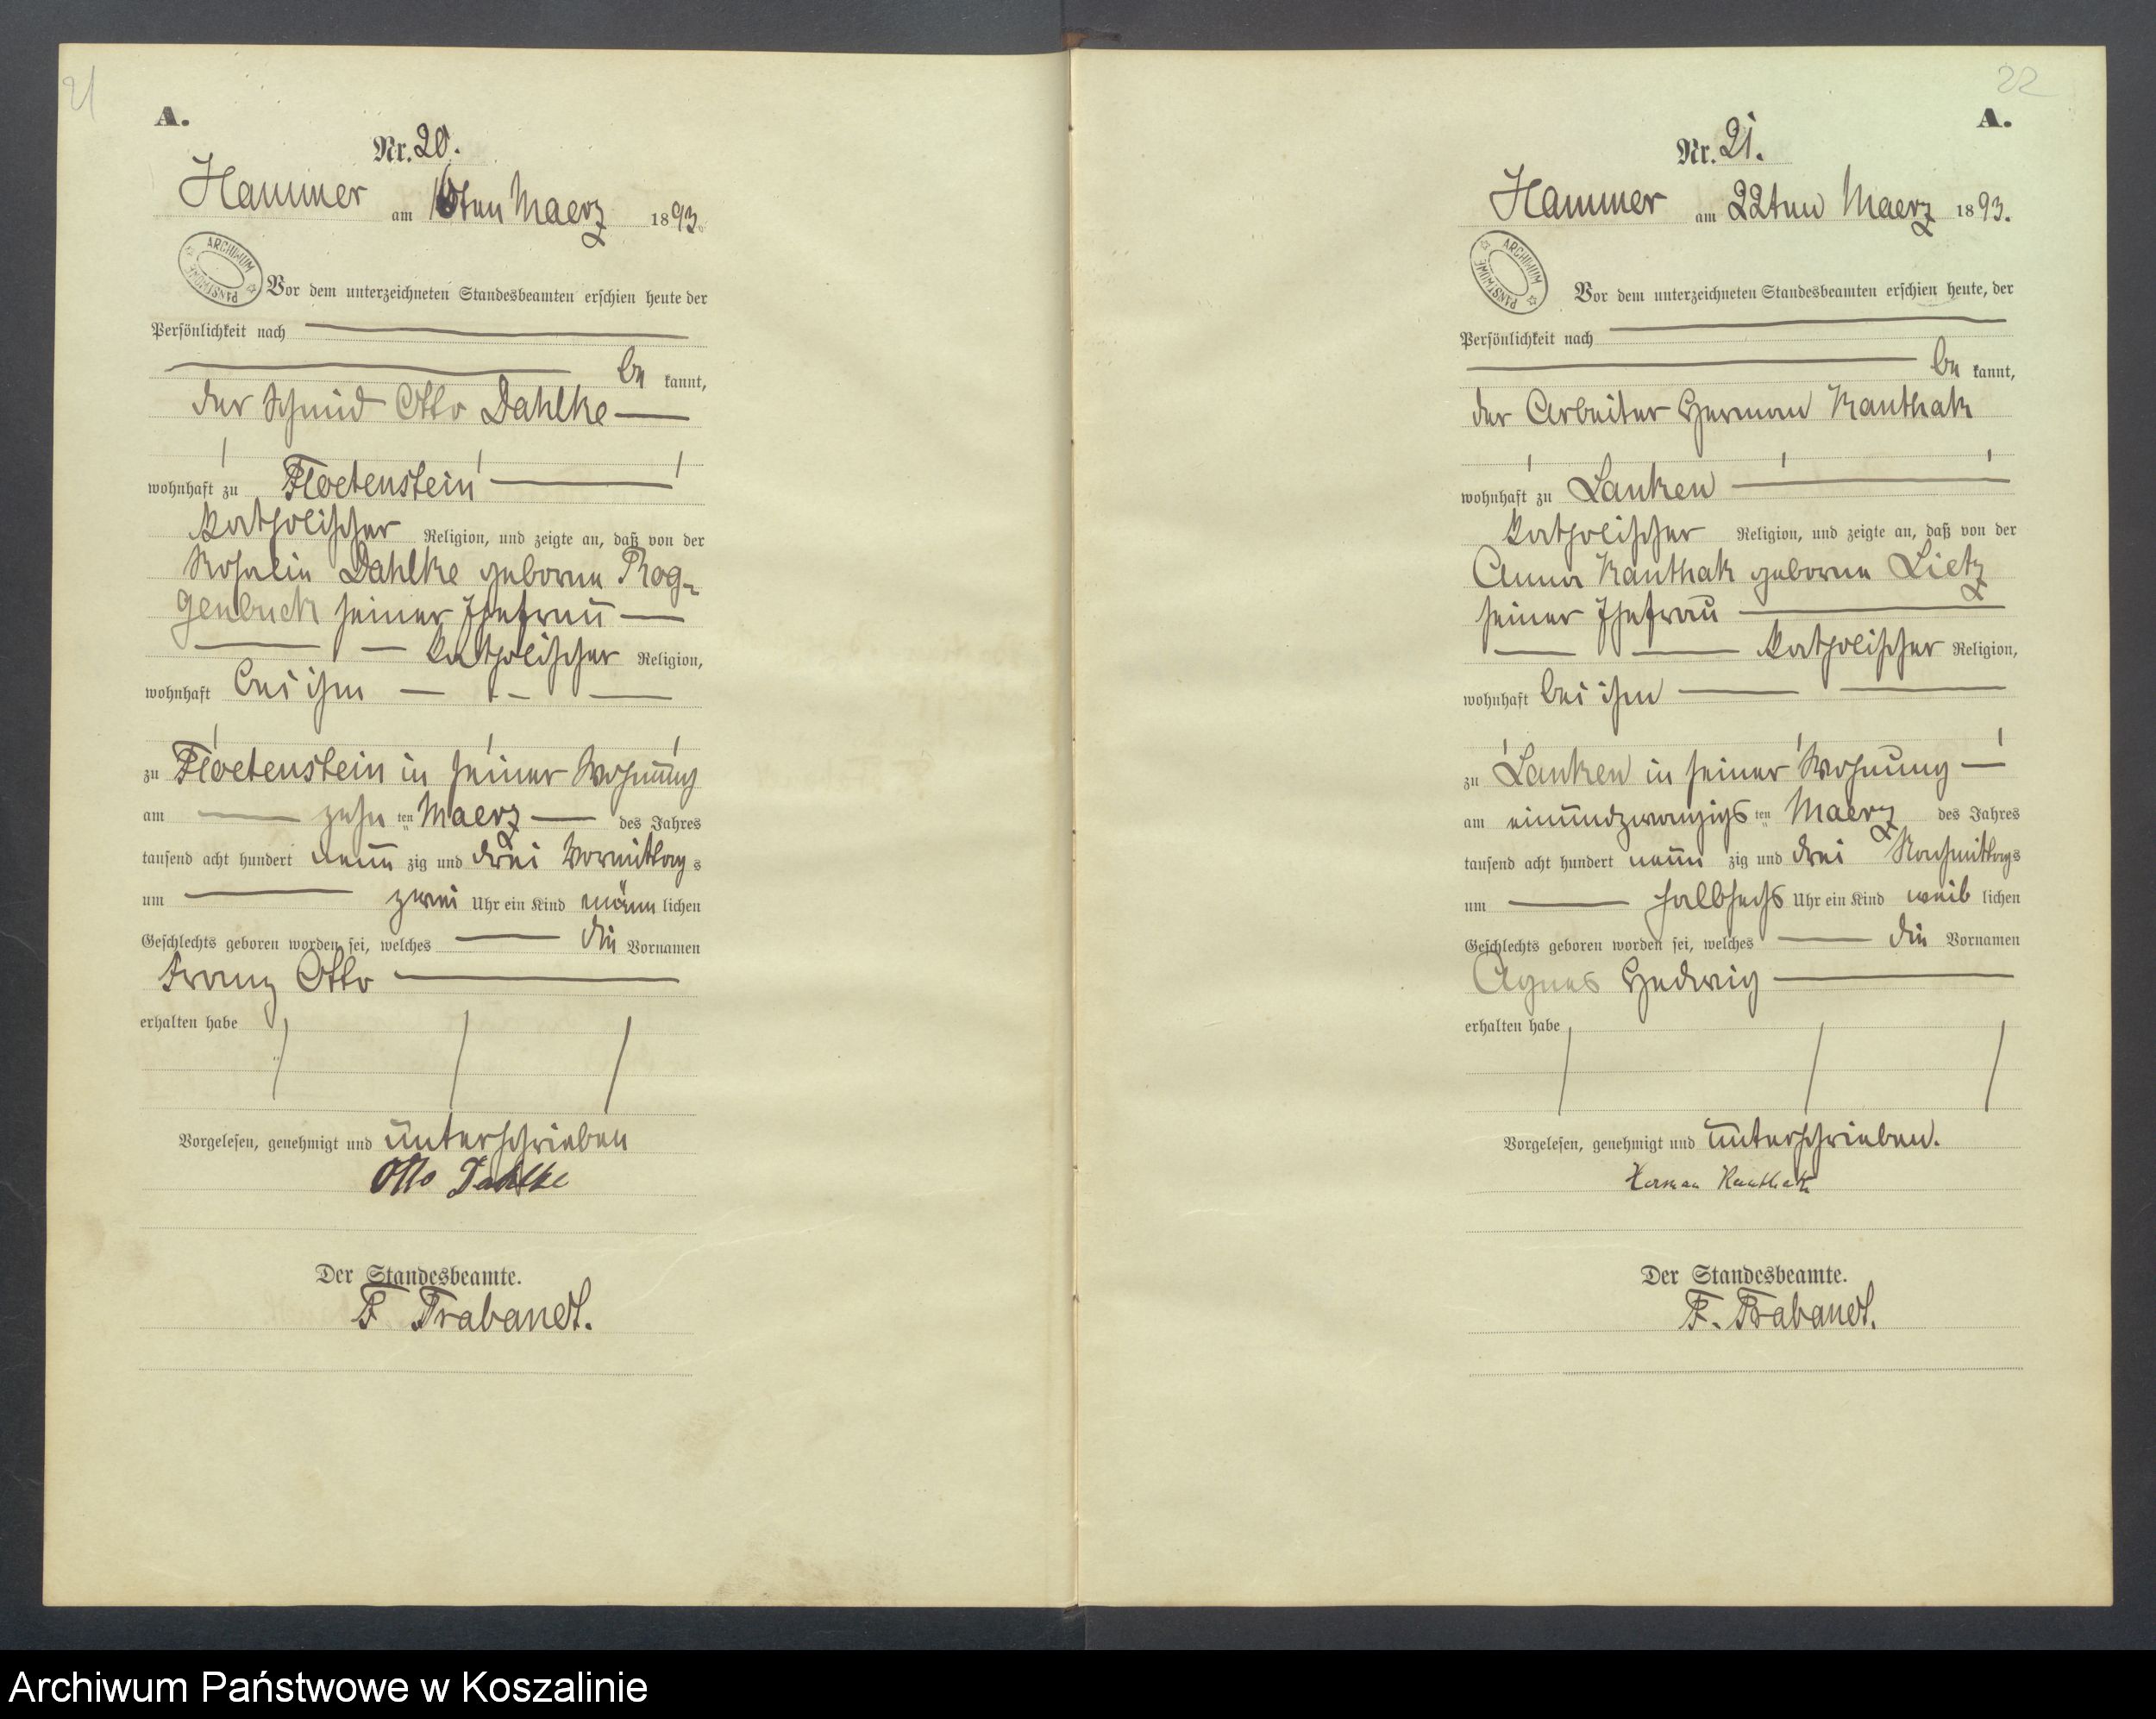 21
A.
Nr. 20.
Hammer am 16ten Maerz 1893.
ARCHIWUM PAŃSTWOWE
Vor dem unterzeichneten Standesbeamten erschien heute der
Persönlichkeit nach
be kannt,
der Schmid Otto Dahlke
wohnhaft zu Floetenstein
katholischer Religion, und zeigte an, daß von der
Rosalie Dahlke geborne Rog-
genbuck seiner Ehefrau
katholischer Religion,
wohnhaft bei ihm
zu Floetenstein in seiner Wohnung
am zehn ten Maerz des Jahres
tausend acht hundert neun zig und drei Vormittag s
um zwei Uhr ein Kind männ lichen
Geschlechts geboren worden sei, welches die Vornamen
Franz Otto
erhalten habe
Vorgelesen, genehmigt und unterschrieben
Otto Dahlke
Der Standesbeamte.
F Trabandt.
22
A.
Nr. 21.
Hammer am 22ten Maerz 1893.
ARCHIWUM PAŃSTWOWE
Vor dem unterzeichneten Standesbeamten erschien heute, der
Persönlichkeit nach
be kannt,
der Arbeiter Herman Kanthak
wohnhaft zu Lanken
katholischer Religion, und zeigte an, daß von der
Anna Kanthak geborne Lietz
seiner Ehefrau
katholischer Religion,
wohnhaft bei ihm
zu Lanken in seiner Wohnung
am einundzwanzigs ten Maerz des Jahres
tausend acht hundert neun zig und drei Nachmittags
um halbsechs Uhr ein Kind weib lichen
Geschlechts geboren worden sei, welches die Vornamen
Agnes Hedwig
erhalten habe
Vorgelesen, genehmigt und unterschrieben.
Herman Kanthak
Der Standesbeamte.
F. Trabandt.
Archiwum Państwowe w Koszalinie